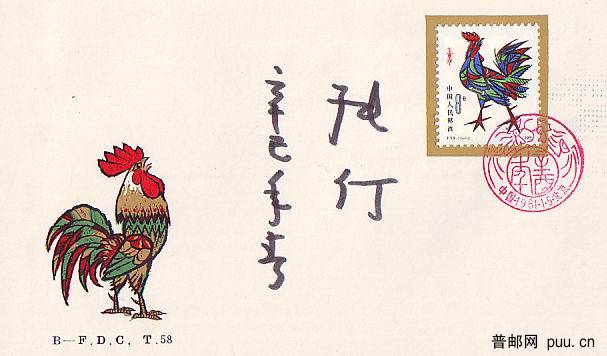 张仃
辛巳年春
中国人民邮政
8分
T.58.(1-1)
1981
中国·1981·1·5·北京
B—F.D.C. T.58
普邮网 puu.cn